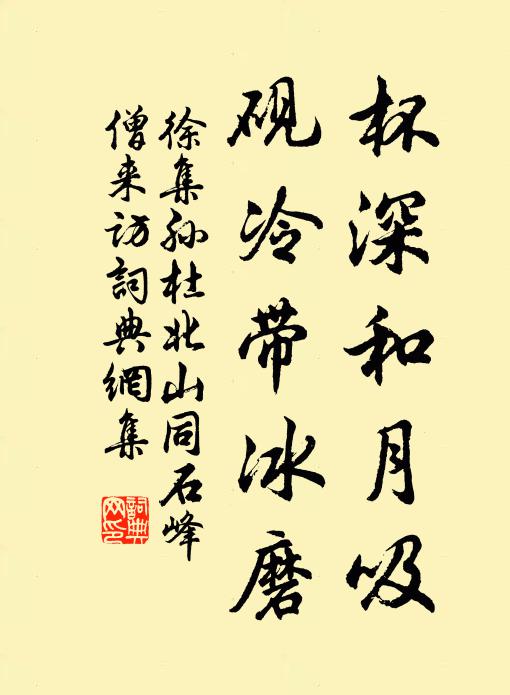 杯深和月吸
砚冷带冰磨
徐集孙杜北山同石峰
僧来访词典網集
詞典
网印